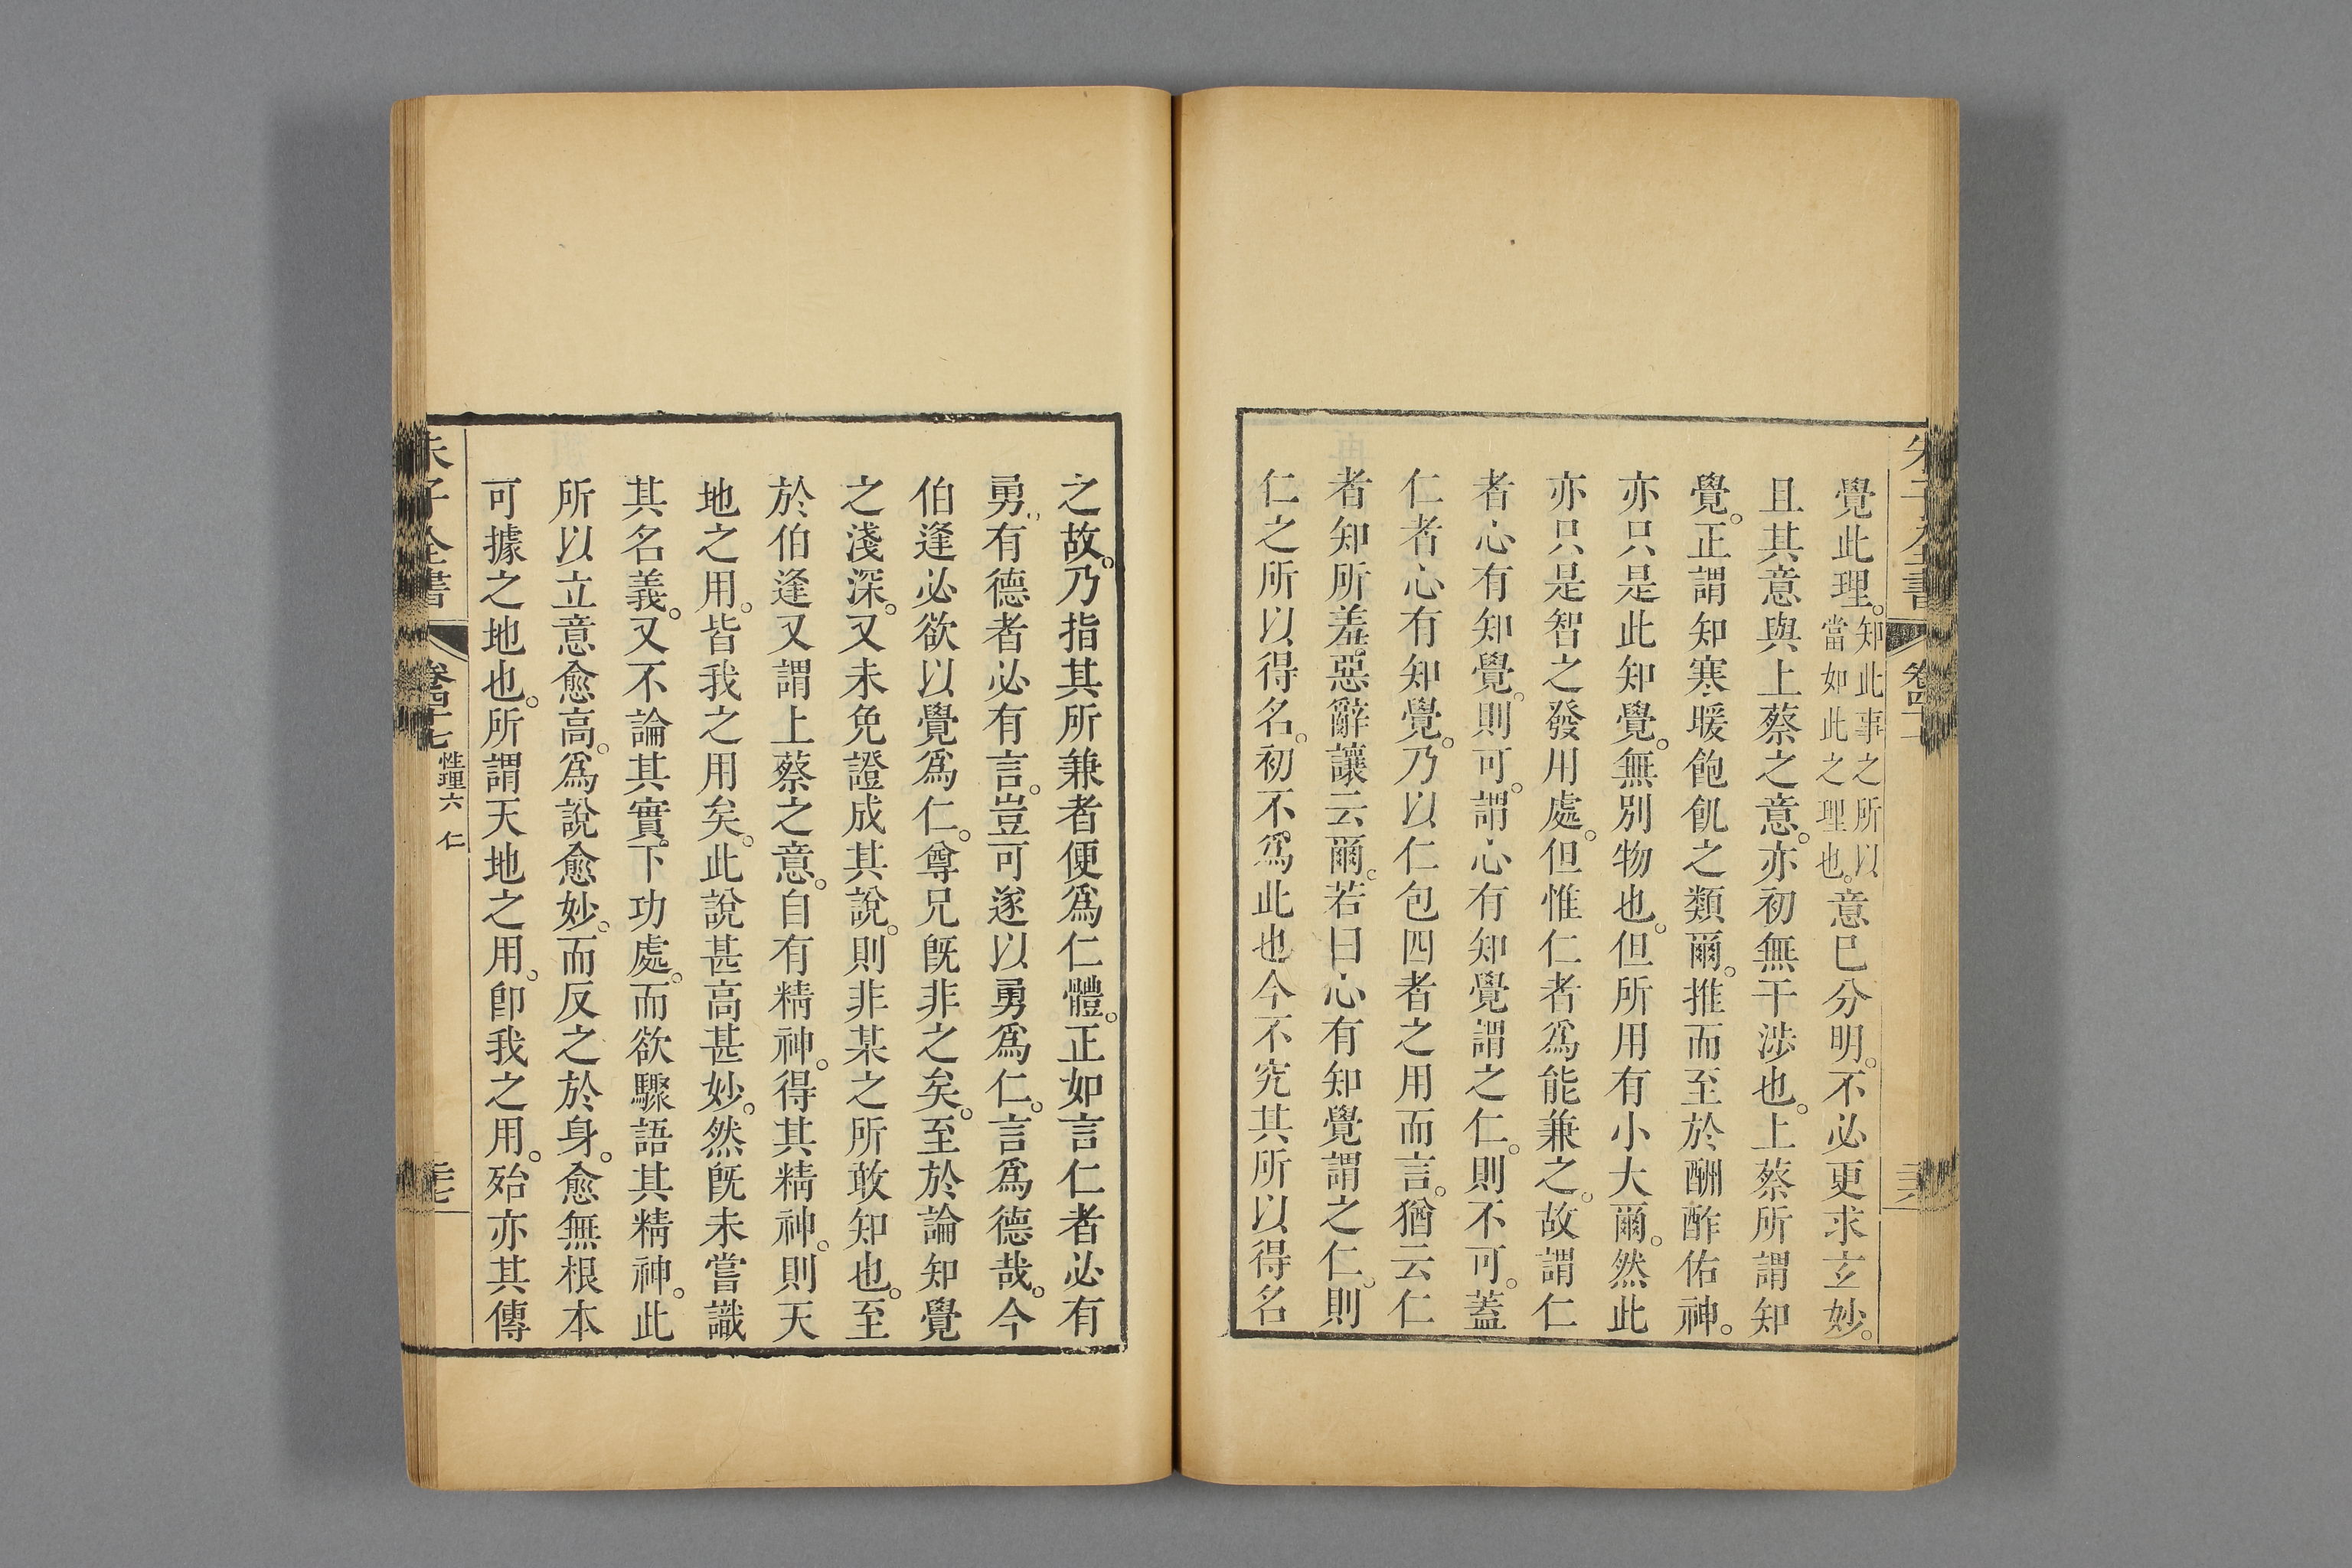 覺此理。知此事之所以當如此之理也。意已分明。不必更求玄妙。
且其意與上蔡之意。亦初無干涉也。上蔡所謂知
覺。正謂知寒暖飽飢之類爾。推而至於酬酢佑神。
亦只是此知覺。無別物也。但所用有小大爾。然此
亦只是智之發用處。但惟仁者爲能兼之。故謂仁
者心有知覺。則可。謂心有知覺謂之仁。則不可。蓋
仁者心有知覺。乃以仁包四者之用而言。猶云仁
者知所羞惡辭讓云爾。若曰心有知覺謂之仁。則
仁之所以得名。初不爲此也今不究其所以得名
之故。乃指其所兼者便爲仁體。正如言仁者必有
勇。有德者必有言。豈可遂以勇爲仁。言爲德哉。今
伯逢必欲以覺爲仁。尊兄旣非之矣。至於論知覺
之淺深。又未免證成其說。則非某之所敢知也。至
於伯逢又謂上蔡之意。自有精神。得其精神。則天
地之用。皆我之用矣。此說甚高甚妙。然旣未嘗識
其名義。又不論其實下功處。而欲驟語其精神。此
所以立意愈高。爲說愈妙。而反之於身。愈無根本
可據之地也。所謂天地之用。卽我之用。殆亦其傳
朱子全書 卷四十七 性理六 仁